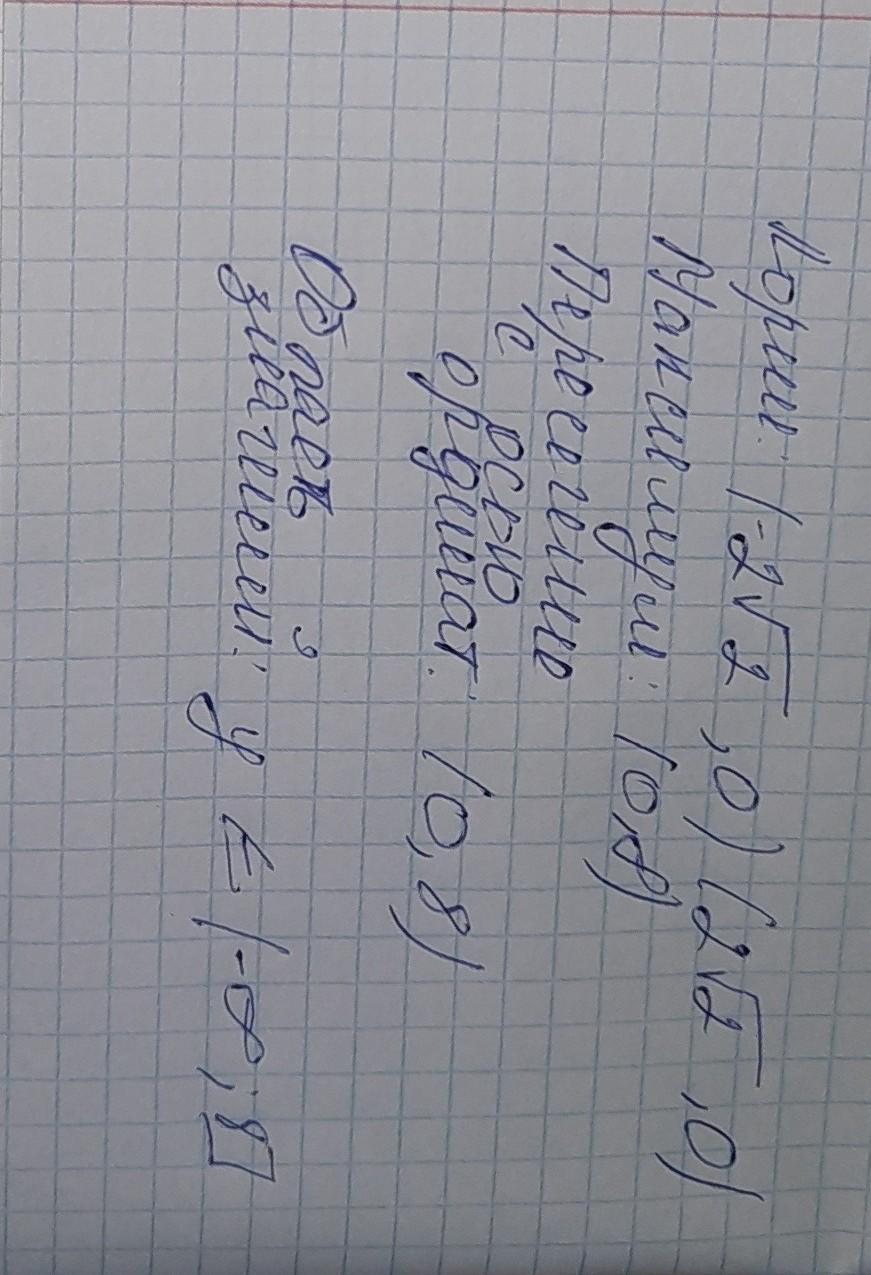 Корни: (-2√2, 0) (2√2, 0)
Максимум: (0,8)
Пересечение
с осью
ординат: (0,8)
Область
значений: y ∈ (-∞, 8]